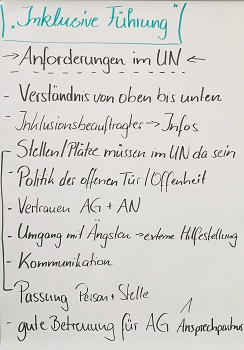 "Inklusive Führung"
→ Anforderungen im UN ←
- Verständnis von oben bis unten
- Inklusionsbeauftragter → Infos
- Stellen/Plätze müssen im UN da sein
- Politik der offenen Tür/Offenheit
- Vertrauen AG + AN
- Umgang mit Ängsten → externe Hilfestellung
- Kommunikation
- Passung Person + Stelle
- gute Betreuung für AG Ansprechpartner